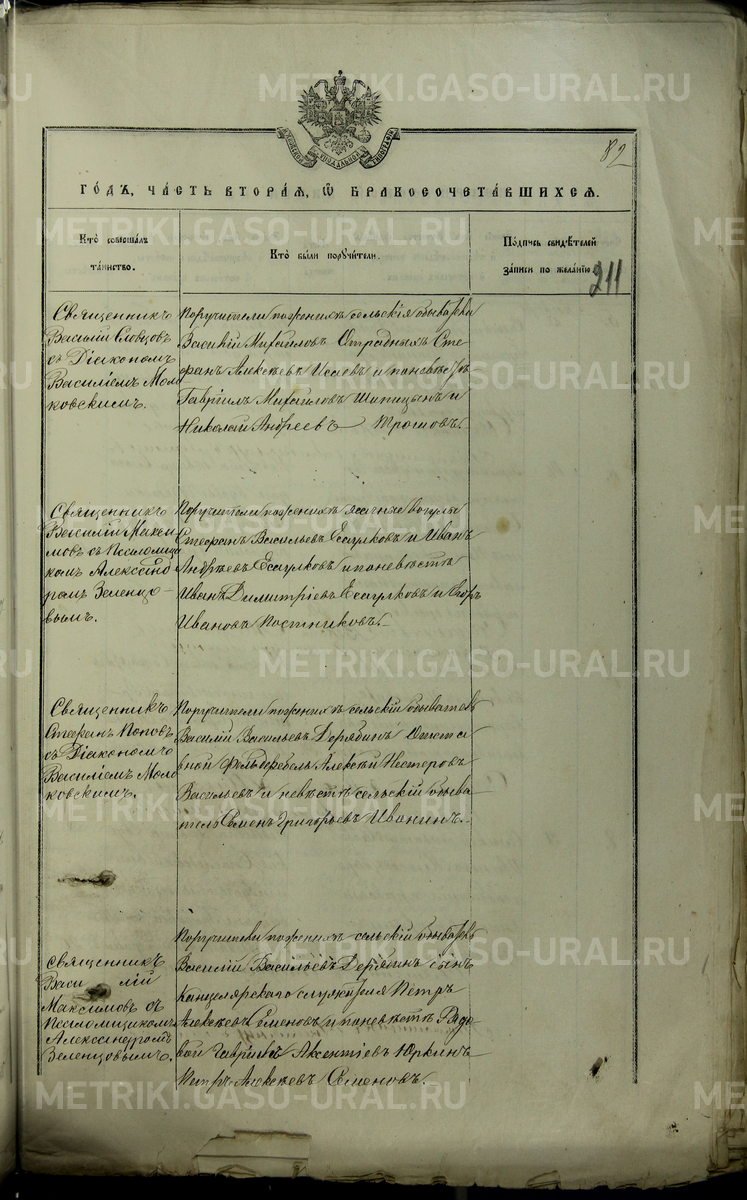 82
ГО́ДЪ, ЧА́СТЬ ВТОРА́Я, Ѡ҆ БРАКОСОЧЕТА́ВШИХСЯ.
Кто̀ соверша́лъ
та́инство.
Кто̀ бы́ли поручи́тели.
По́дпись свидѣ́телей
за́писи по жела́нію.
211
Священникъ
Василій Словцовъ
съ Діакономъ
Василіемъ Моло
ковскимъ.
Поручители по женихѣ сельскія обыватели
Василій Михайловъ Отрадныхъ Сте
фанъ Алексѣевъ Исаевъ и по невѣстѣ
Гавріилъ Михайловъ Шипицынъ и
Николай Андреевъ
Священникъ
Василій Макси
мовъ съ Псаломщи
комъ Алексан
ромъ Зеленцо
вымъ.
Поручители по женихѣ ясачные вогулы
Стефанъ Васильевъ Есаулковъ и Иванъ
Андреевъ Есаулковъ и по невѣстѣ
Иванъ Димитріевъ Есаулковъ и Егоръ
Ивановъ Постниковъ.
Священникъ
Стефанъ Поповъ
съ Діакономъ
Василіемъ Моло
ковскимъ.
Поручители по женихѣ сельскій обыватель
Василій Васильевъ Дерябинъ Отста
вной Фельдфебель Алексѣй Нестеровъ
Васильевъ и невѣстѣ сельскій обыва
тель Семенъ Григорьевъ Иванинъ.
Священникъ
Васи лій
Максимовъ съ
Псаломщикомъ
Александромъ
Зеленцовымъ.
Поручители по женихѣ сельскій обыватель
Василій Васильевъ Дерябинъ сынъ
Канцелярскаго служителя Петръ
Алексѣевъ Семеновъ и по невѣстѣ Рядо
вой Гавріилъ Аксентіевъ Юркинъ
Петръ Алексѣевъ Семеновъ.
METRIKI.GASO-URAL.RU